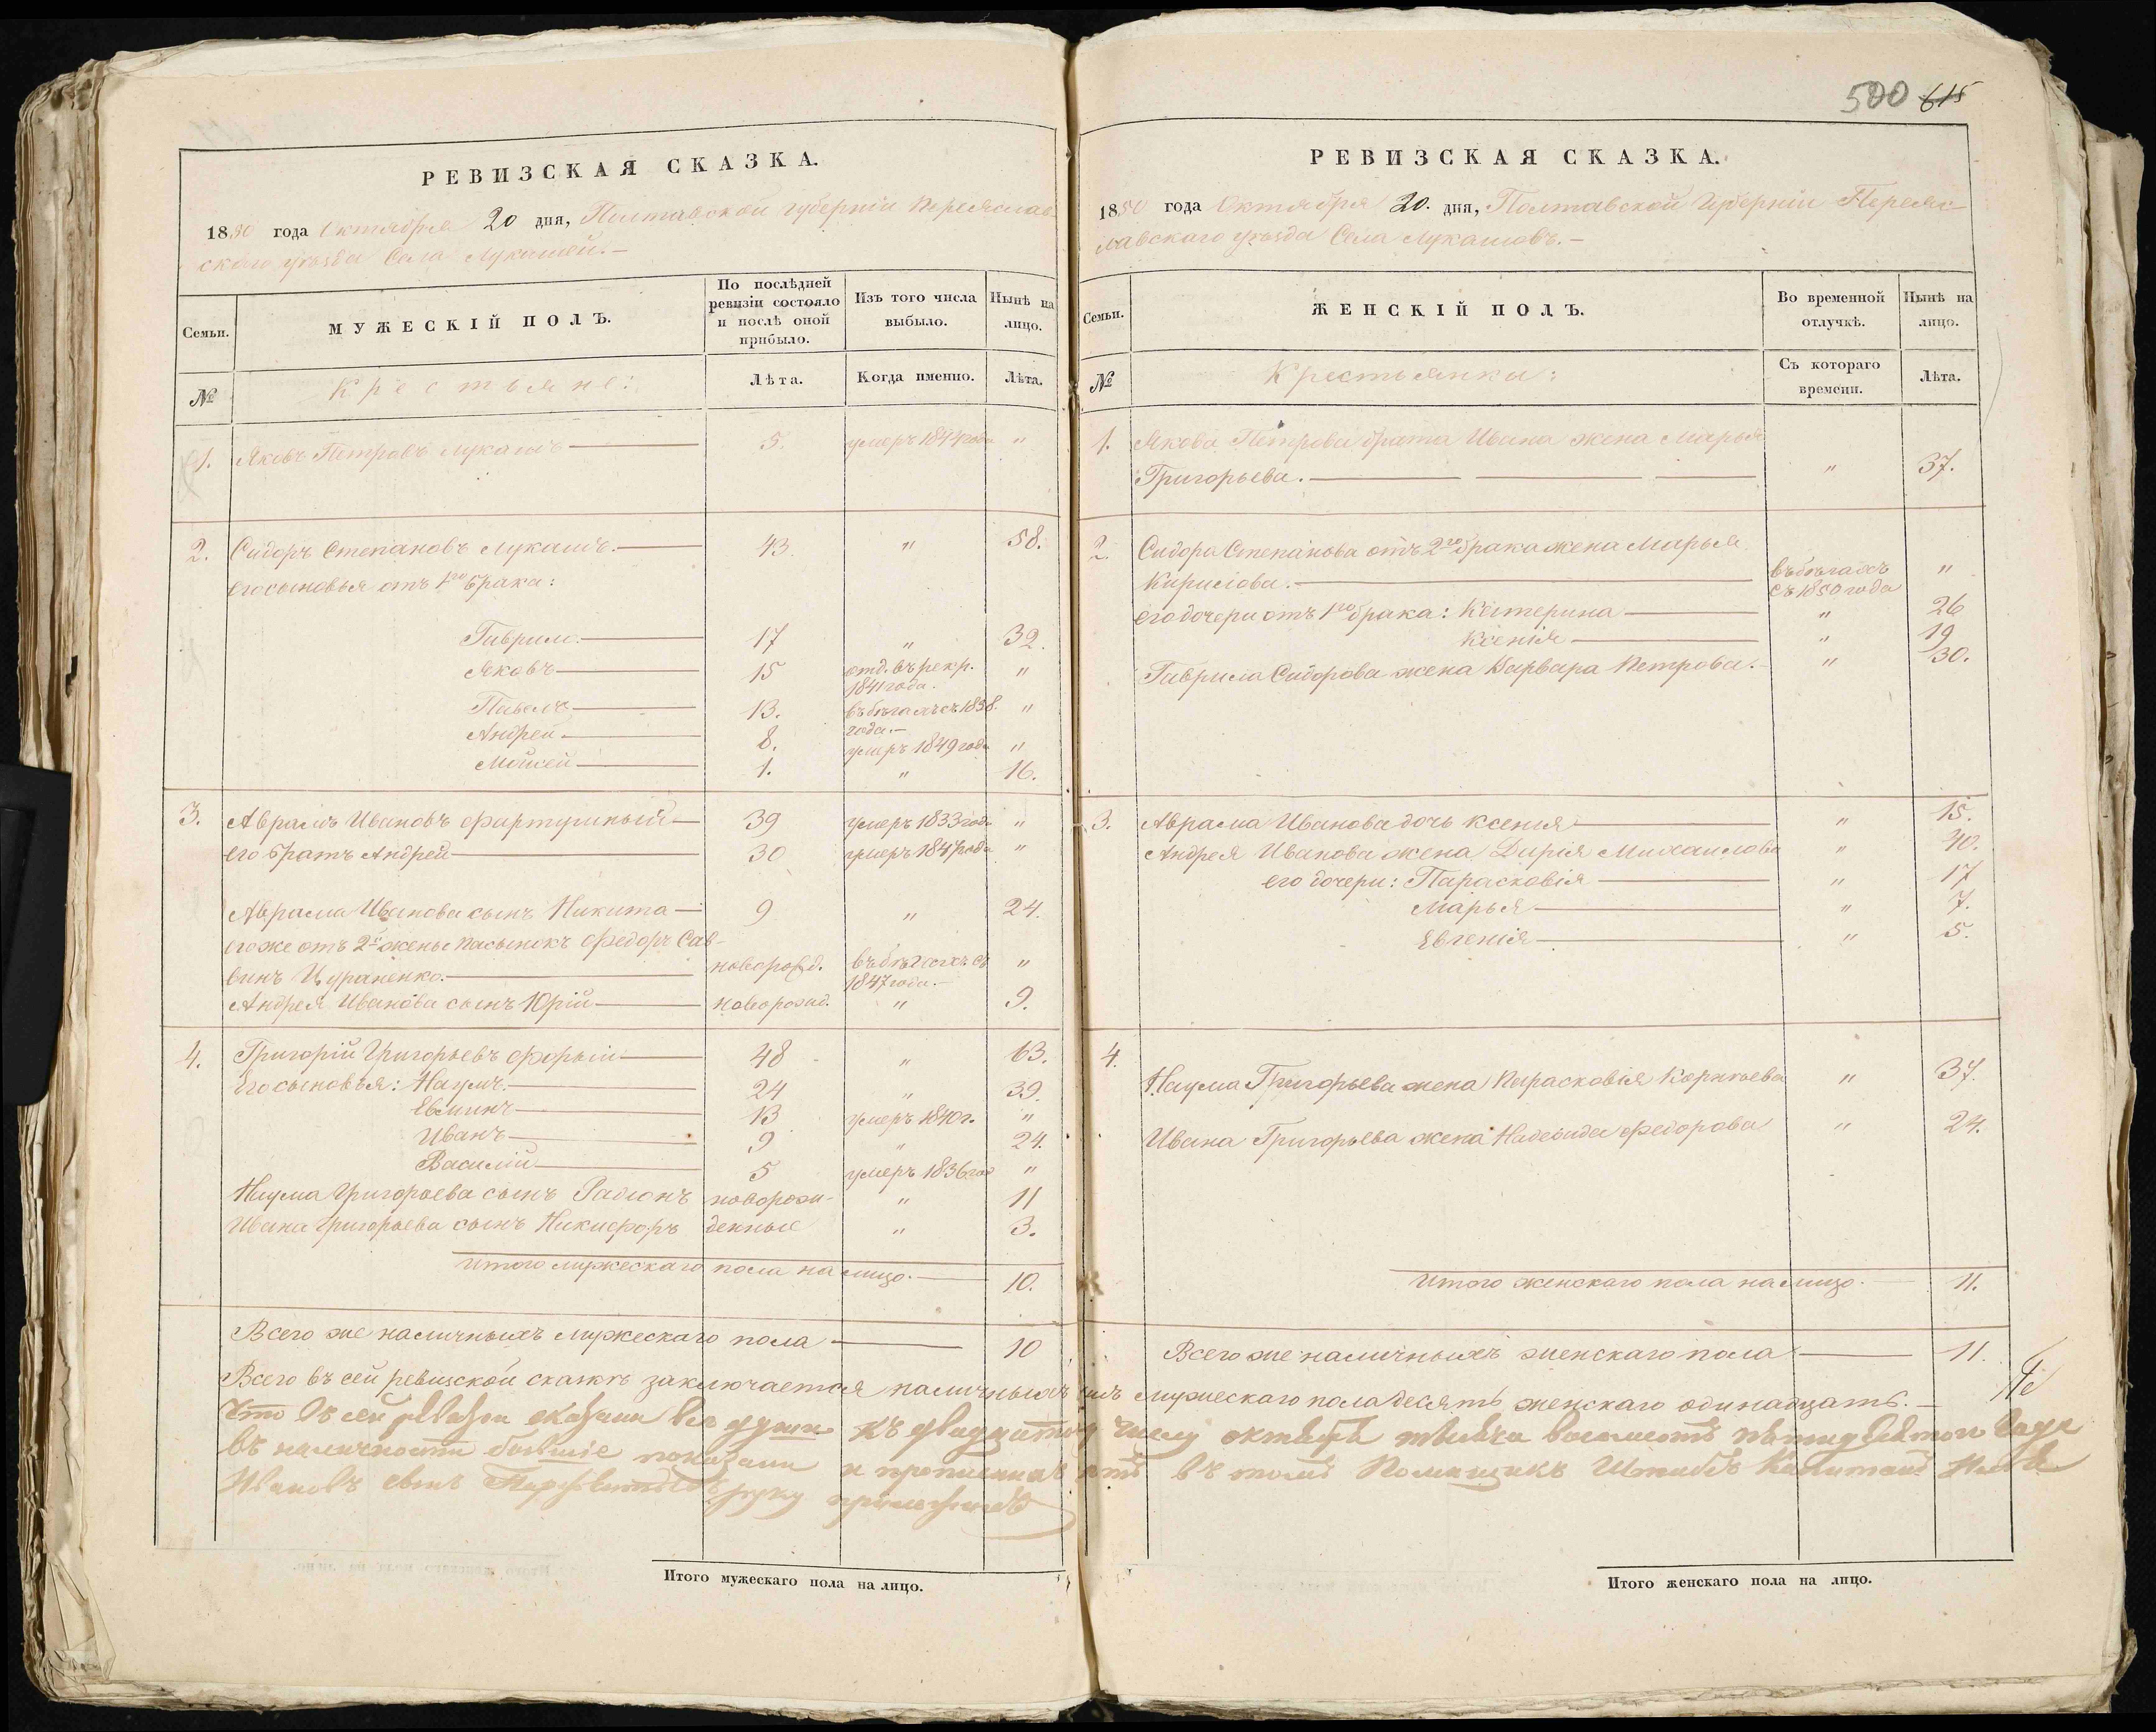 РЕВИЗСКАЯ СКАЗКА.
1850 года Октября 20 дня, Полтавской губерніи Переяслав-
скаго уѣзда Села Лукашей.—
Семьи.
МУЖЕСКІЙ ПОЛЪ.
По послѣдней ревизіи состояло и послѣ оной прибыло.
Изъ того числа выбыло.
Нынѣ на лицо.
№
Крестьяне:
Лѣта.
Когда именно.
Лѣта.
1. Яковъ Петровъ Лукашъ — 5. умеръ 1844 года "
2. Сидоръ Степановъ Лукашъ. — 43. " 58.
его сыновья отъ 1го брака:
Гаврило. — 17 " 32.
Яковъ — 15 отд. въ рекр. "
1841 года.
Павелъ — 13. въ бѣгахъ съ 1838. "
года.—
Андрей — 8. умеръ 1849 года "
Мойсей — 1. " 16.
3. Аврамъ Ивановъ Фартушный — 39 умеръ 1833 года "
его братъ Андрей — 30 умеръ 1847 года "
Аврама Иванова сынъ Никита — 9 " 24.
его же отъ 2й жены пасынокъ Федоръ Сав-
винъ Цураненко. — новорожд. въ бѣгахъ съ "
1847 года.—
Андрея Иванова сынъ Юрій — новорожд. " 9.
4. Григорій Григорьевъ Форый — 48 " 63.
Его сыновья: Наумъ. — 24 " 39.
Евминъ — 13 умеръ 1840 г. "
Иванъ — 9 " 24.
Василій — 5 умеръ 1836 год "
Наума Григорьева сынъ Радіонъ новорож- " 11
Ивана Григорьева сынъ Никифоръ денные " 3.
Итого мужескаго пола на лицо. — 10.
Всего же наличныхъ мужескаго пола — 10
Итого мужескаго пола на лицо.
500 615
РЕВИЗСКАЯ СКАЗКА.
1850 года Октября 20. дня, Полтавской Губерніи Переяс-
лавскаго уѣзда Села Лукашовъ.—
Семьи.
ЖЕНСКІЙ ПОЛЪ.
Во временной отлучкѣ.
Нынѣ на лицо.
№
Крестьянки:
Съ котораго времени.
Лѣта.
1. Якова Петрова брата Ивана жена Марья
Григорьева. — " 37.
2. Сидора Степанова отъ 2го брака жена Марья
Кирилова. — въ бѣгахъ "
съ 1850 года
его дочери отъ 1го брака: Катерина — " 26
Ксенія — " 19
Гаврила Сидорова жена Варвара Петрова. — " 30.
3. Аврама Иванова дочь Ксенія — " 15.
Андрея Иванова жена Дарія Михаилова " 40.
его дочери: Парасковія — " 17
Марья — " 7.
Евгенія — " 5.
4.
Наума Григорьева жена Парасковія Корнѣева " 37.
Ивана Григорьева жена Надежда Федорова " 24.
Итого женскаго пола на лицо. 11.
Всего же наличныхъ женскаго пола — 11.
Всего въ сей ревизской сказкѣ заключается наличныхъ мужескаго пола десять женскаго одинадцать.—
Что въ сей всѣ души къ двадцатому числу октября мѣсяца пятидесятого года
въ наличности бывшіе показаны и въ томъ Помѣщикъ Штабсъ Капитанъ
Ивановъ сынъ руку приложилъ
Итого женскаго пола на лицо.